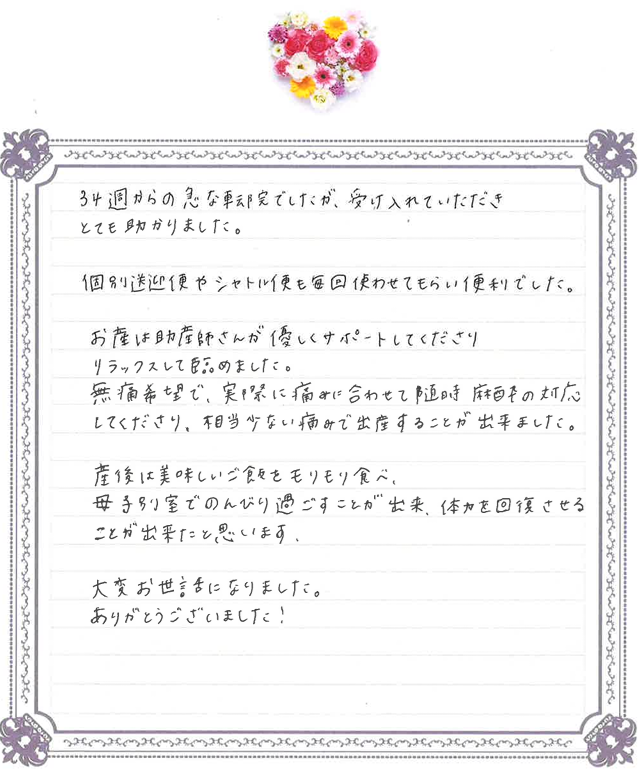 34週からの急な転院でしたが、受け入れていただき
とても助かりました。
個別送迎便やシャトル便も毎回使わせてもらい便利でした。
お産は助産師さんが優しくサポートしてくださり
リラックスして臨めました。
無痛希望で、実際に痛みに合わせて随時麻酔の対応
してくださり、相当少ない痛みで出産することが出来ました。
産後は美味しいご飯をモリモリ食べ、
母子別室でのんびり過ごすことが出来、体力を回復させる
ことが出来たと思います。
大変お世話になりました。
ありがとうございました!